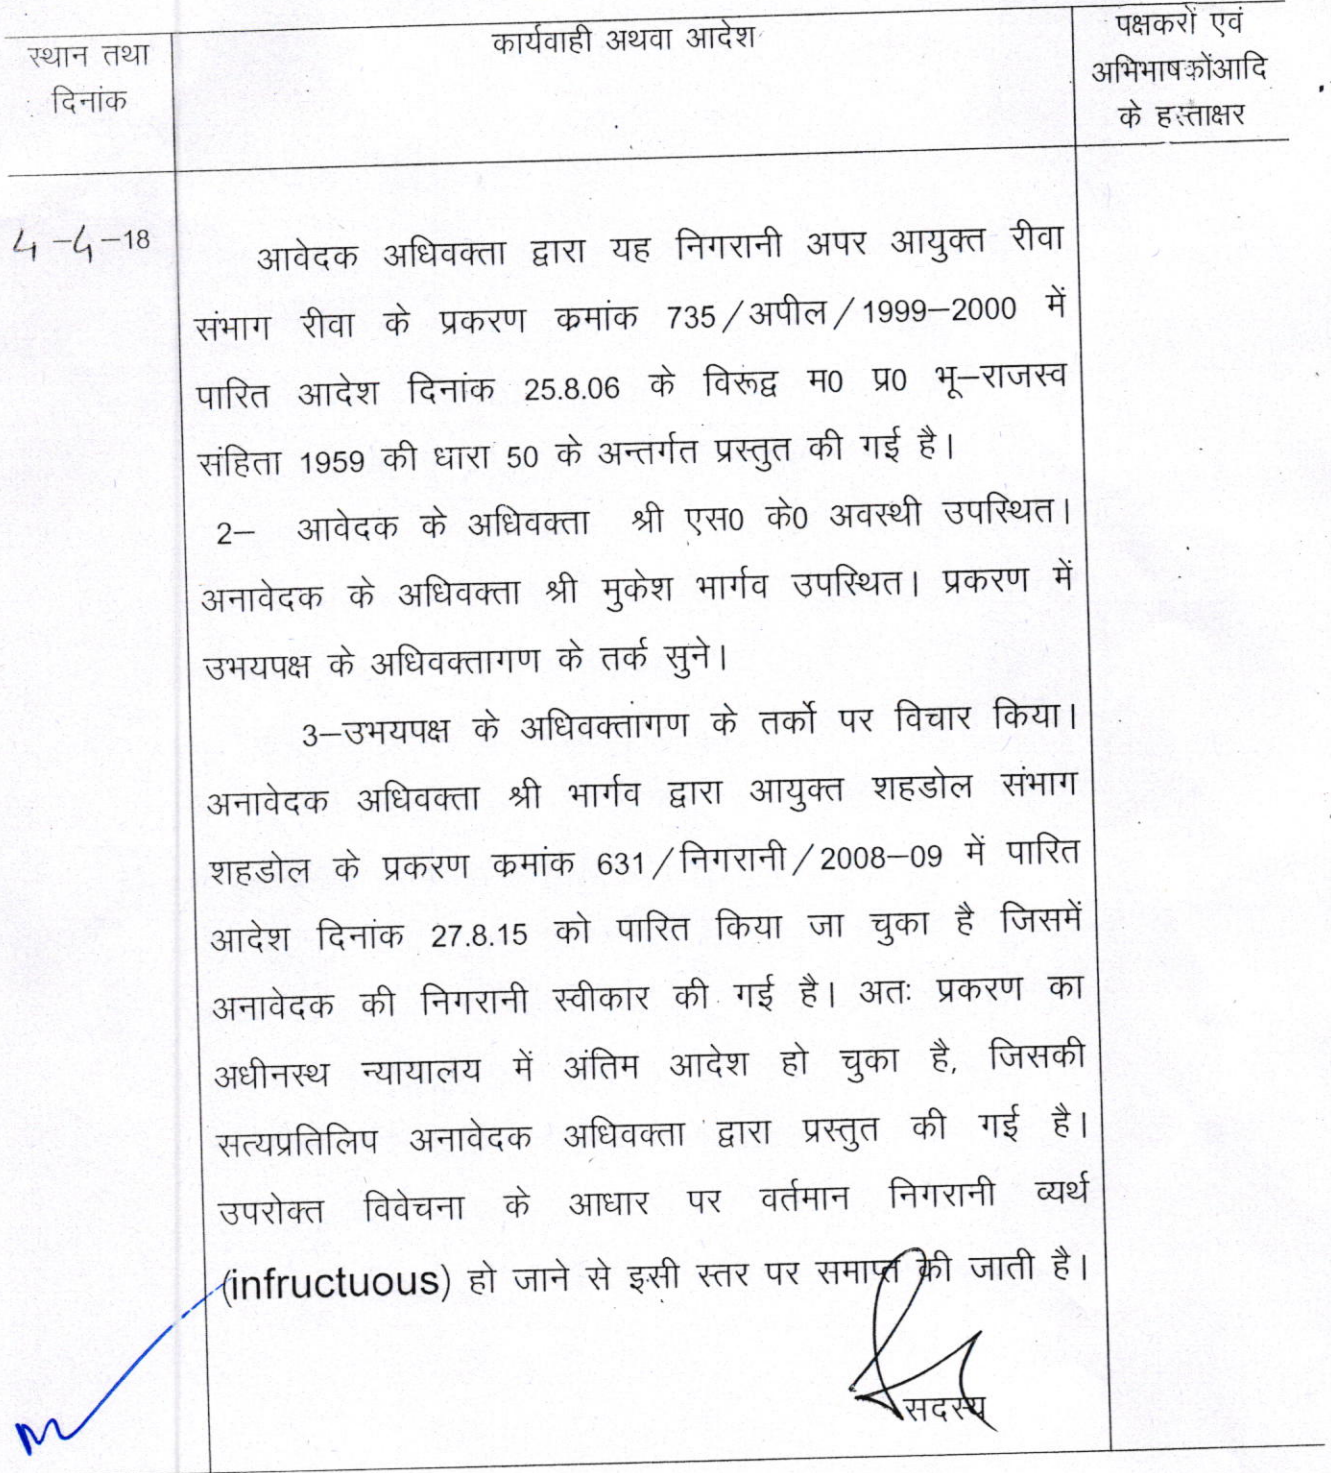 स्थान तथा
दिनांक
कार्यवाही अथवा आदेश
पक्षकरों एवं
अभिभाषकोंआदि
के हस्ताक्षर
4-4-18
आवेदक अधिवक्ता द्वारा यह निगरानी अपर आयुक्त रीवा
संभाग रीवा के प्रकरण कमांक 735/अपील/1999–2000 में
पारित आदेश दिनांक 25.8.06 के विरूद्व म0 प्र0 भू–राजस्व
संहिता 1959 की धारा 50 के अन्तर्गत प्रस्तुत की गई है।
2– आवेदक के अधिवक्ता श्री एस0 के0 अवस्थी उपस्थित।
अनावेदक के अधिवक्ता श्री मुकेश भार्गव उपस्थित। प्रकरण में
उभयपक्ष के अधिवक्तागण के तर्क सुने।
3–उभयपक्ष के अधिवक्तागण के तर्को पर विचार किया।
अनावेदक अधिवक्ता श्री भार्गव द्वारा आयुक्त शहडोल संभाग
शहडोल के प्रकरण कमांक 631/निगरानी/2008–09 में पारित
आदेश दिनांक 27.8.15 को पारित किया जा चुका है जिसमें
अनावेदक की निगरानी स्वीकार की गई है। अतः प्रकरण का
अधीनस्थ न्यायालय में अंतिम आदेश हो चुका है, जिसकी
सत्यप्रतिलिप अनावेदक अधिवक्ता द्वारा प्रस्तुत की गई है।
उपरोक्त विवेचना के आधार पर वर्तमान निगरानी व्यर्थ
(infructuous) हो जाने से इसी स्तर पर समाप्त की जाती है।
सदस्य